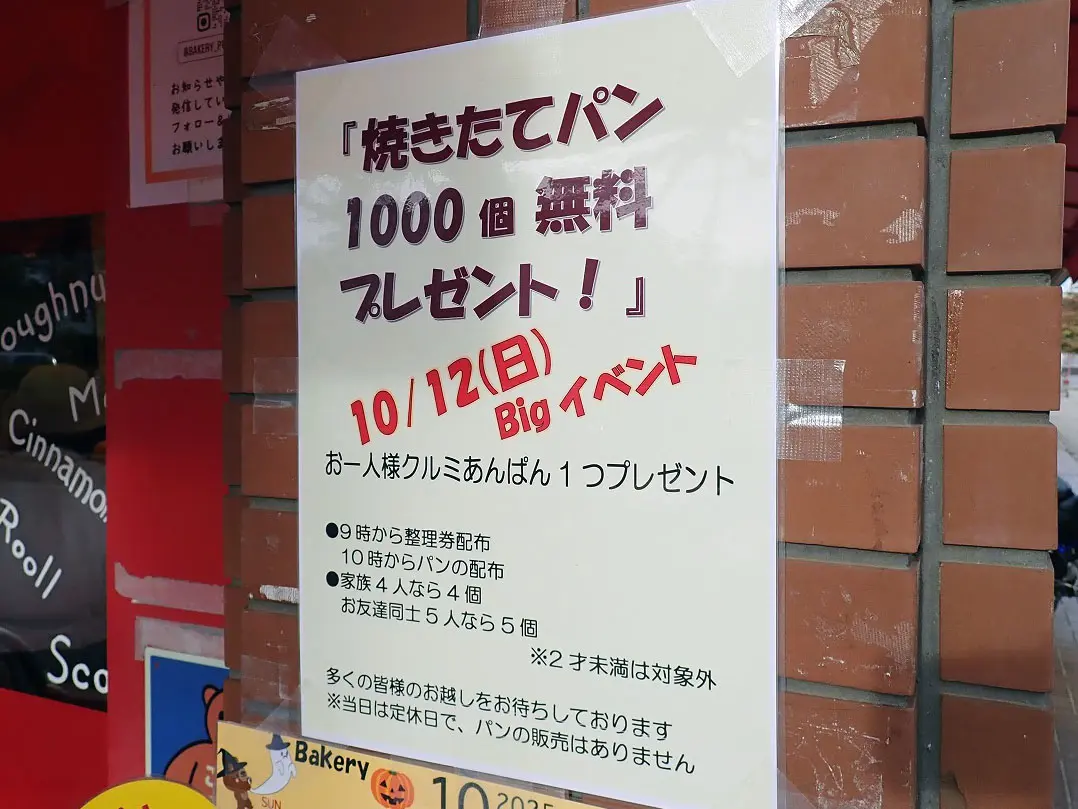 @BAKERY_P
お知らせや
発信してい
フォロー&
お願いしま
『焼きたてパン
1000個 無料
プレゼント！』
10/12(日)
Big イベント
お一人様クルミあんぱん1つプレゼント
●9時から整理券配布
10時からパンの配布
●家族4人なら4個
お友達同士5人なら5個
※2才未満は対象外
多くの皆様のお越しをお待ちしております
※当日は定休日で、パンの販売はありません
oughnu
M
Cinnamon
Rooll
Sco
Bakery
10 2025
SUN